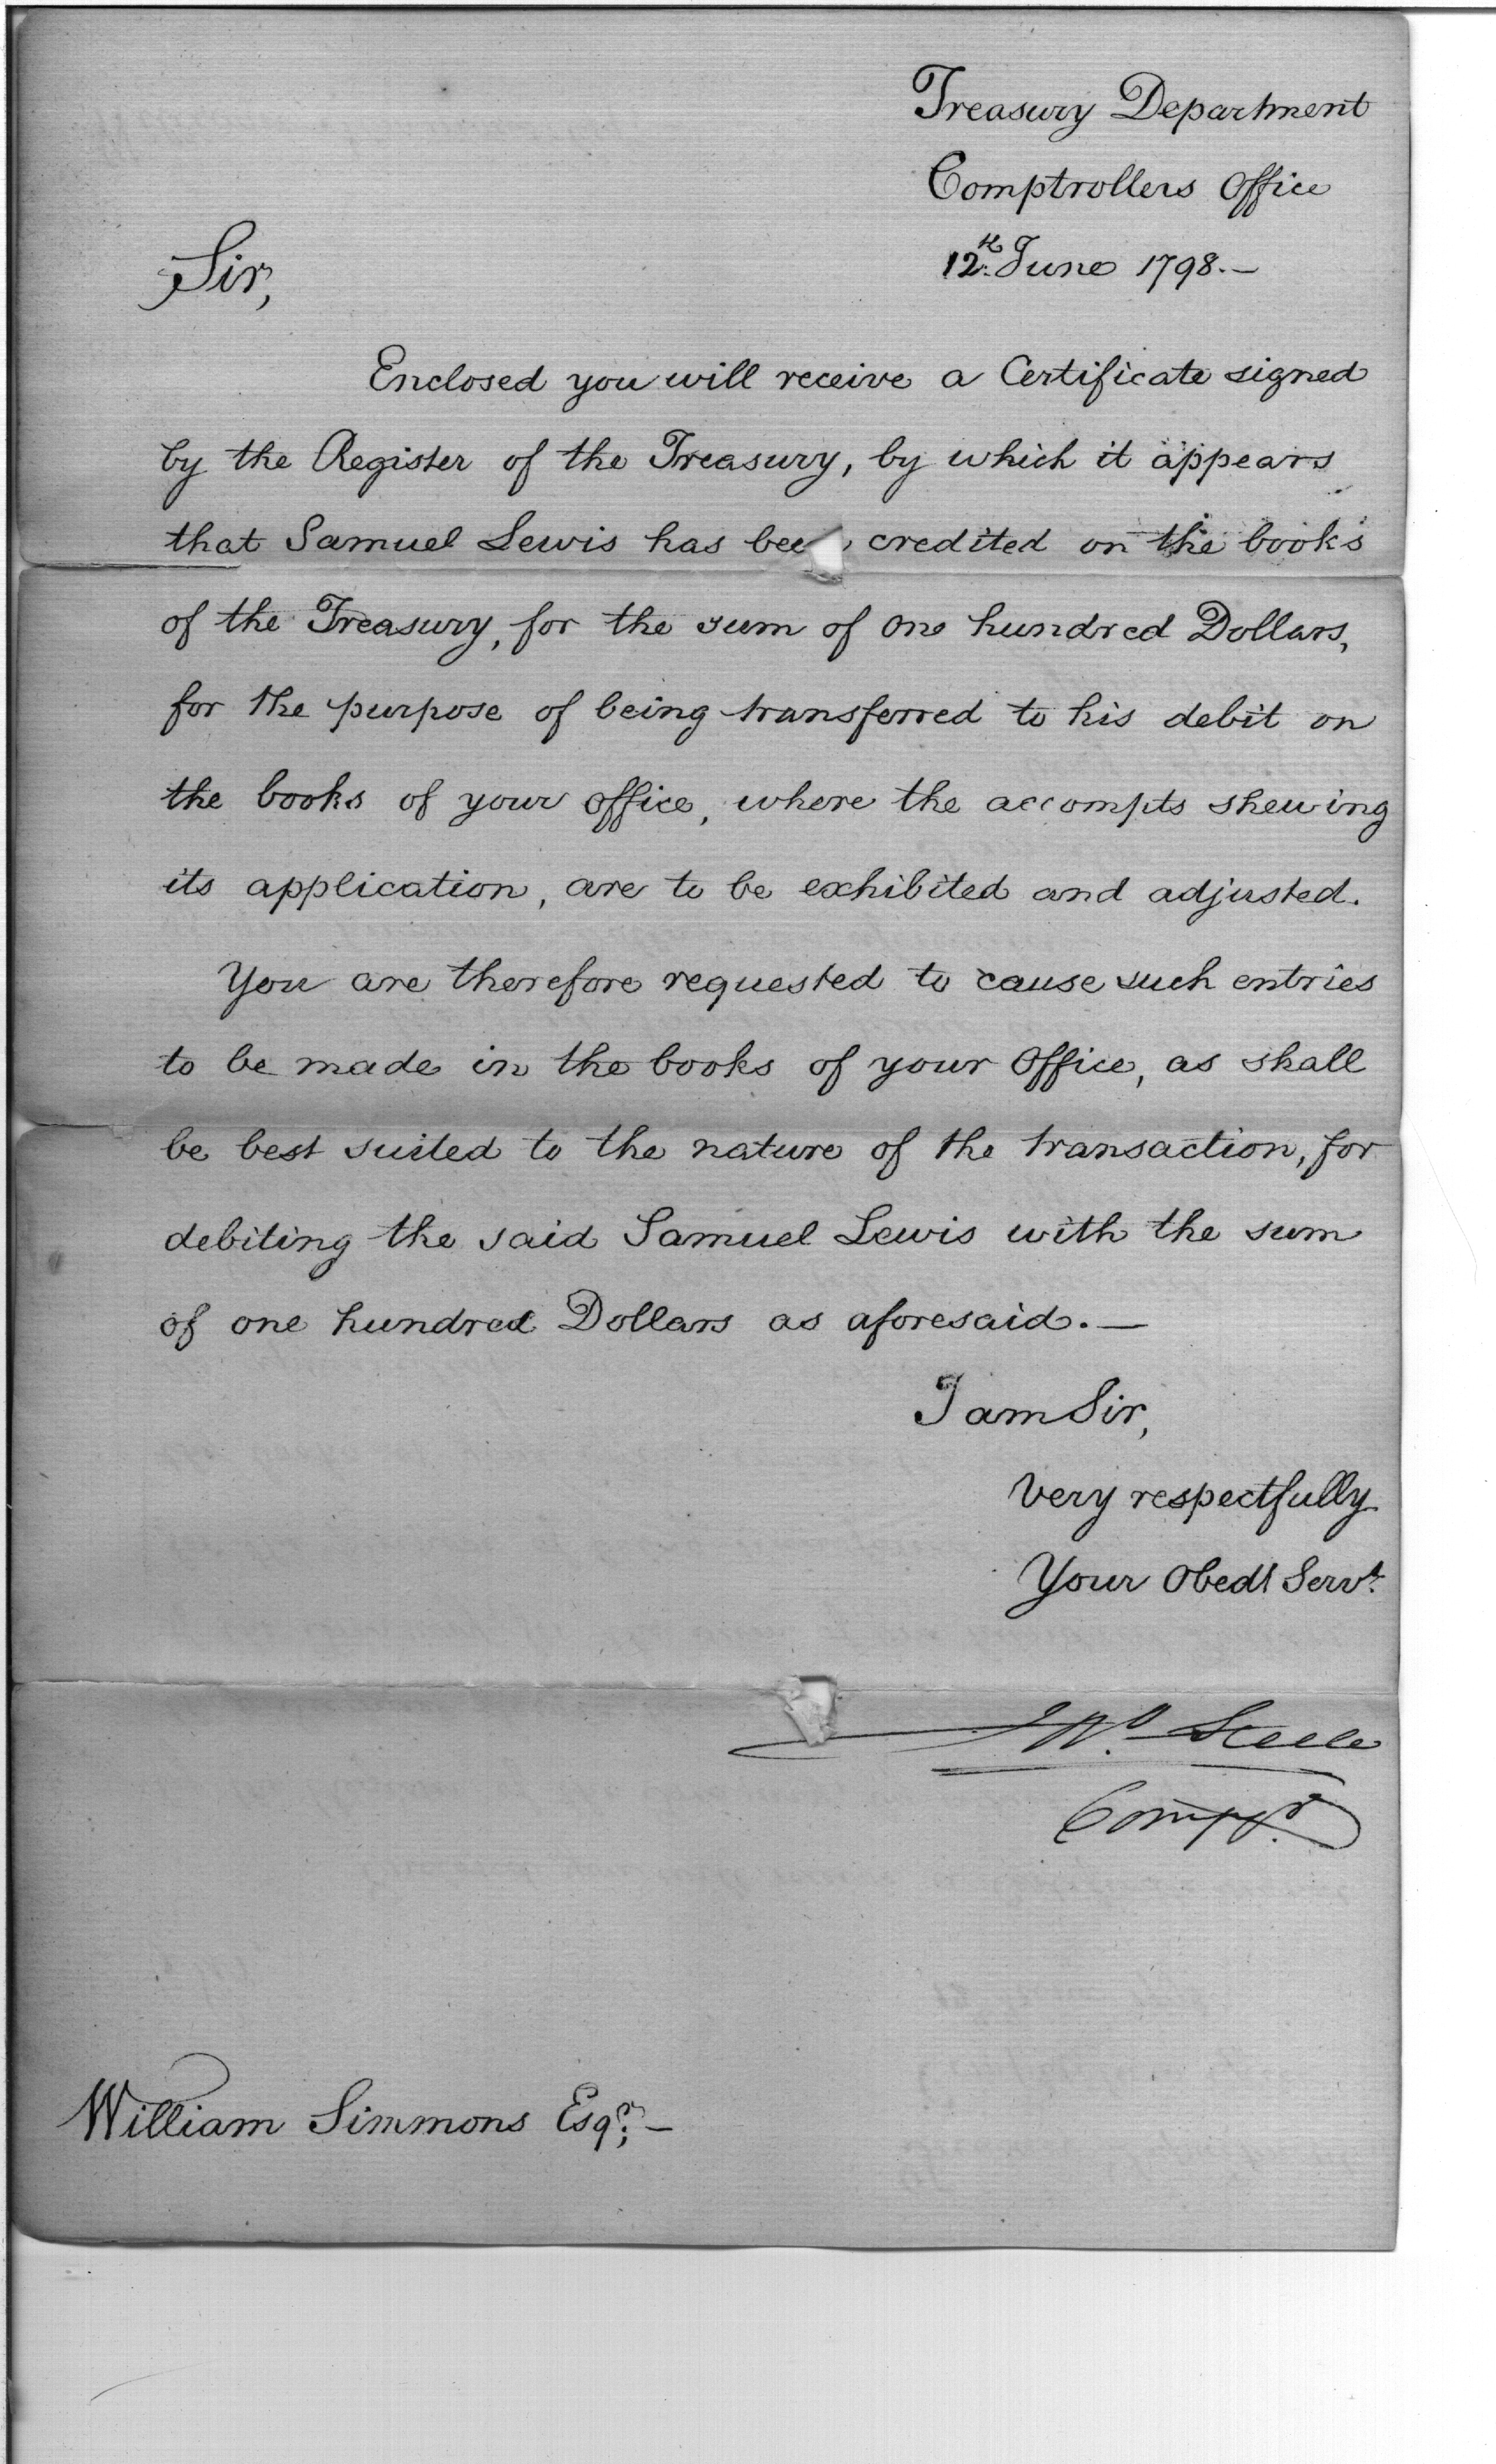 Treasury Department
Comptrollers Office
12th. June 1798.—
Sir,
Enclosed you will receive a Certificate signed
by the Register of the Treasury, by which it appears
that Samuel Lewis has been credited on the books
of the Treasury, for the sum of one hundred Dollars,
for the purpose of being transferred to his debit on
the books of your office, where the accompts shewing
its application, are to be exhibited and adjusted.
You are therefore requested to cause such entries
to be made in the books of your Office, as shall
be best suited to the nature of the transaction, for
debiting the said Samuel Lewis with the sum
of one hundred Dollars as aforesaid.—
I am Sir,
Very respectfully
Your Obedt Servt.
Jno. Steele
Compr.
William Simmons Esqr.—